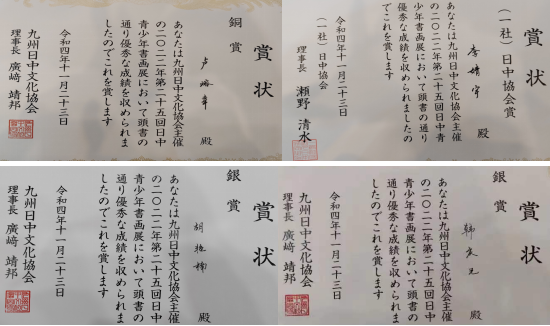 銅賞
殿
あなたは九州日中文化協会主催
の二〇二二年第二十五回日中
青少年書画展において頭書の
通り優秀な成績を収められま
したのでこれを賞します
令和四年十一月二十三日
九州日中文化協会
理事長 廣﨑 靖邦
賞状
(一社)日中協会賞
李婧宇 殿
あなたは九州日中文化協会主催
の二〇二二年第二十五回日中青
少年書画展において頭書の通り
優秀な成績を収められました
のでこれを賞します
令和四年十一月二十三日
(一社)日中協会
理事長 瀬野 清水
賞状
銀賞
胡 殿
あなたは九州日中文化協会主催
の二〇二二年第二十五回日中
青少年書画展において頭書の
通り優秀な成績を収められま
したのでこれを賞します
令和四年十一月二十三日
九州日中文化協会
理事長 廣﨑 靖邦
賞状
銀賞
韩 殿
あなたは九州日中文化協会主催
の二〇二二年第二十五回日中
青少年書画展において頭書の
通り優秀な成績を収められま
したのでこれを賞します
令和四年十一月二十三日
九州日中文化協会
理事長 廣﨑 靖邦